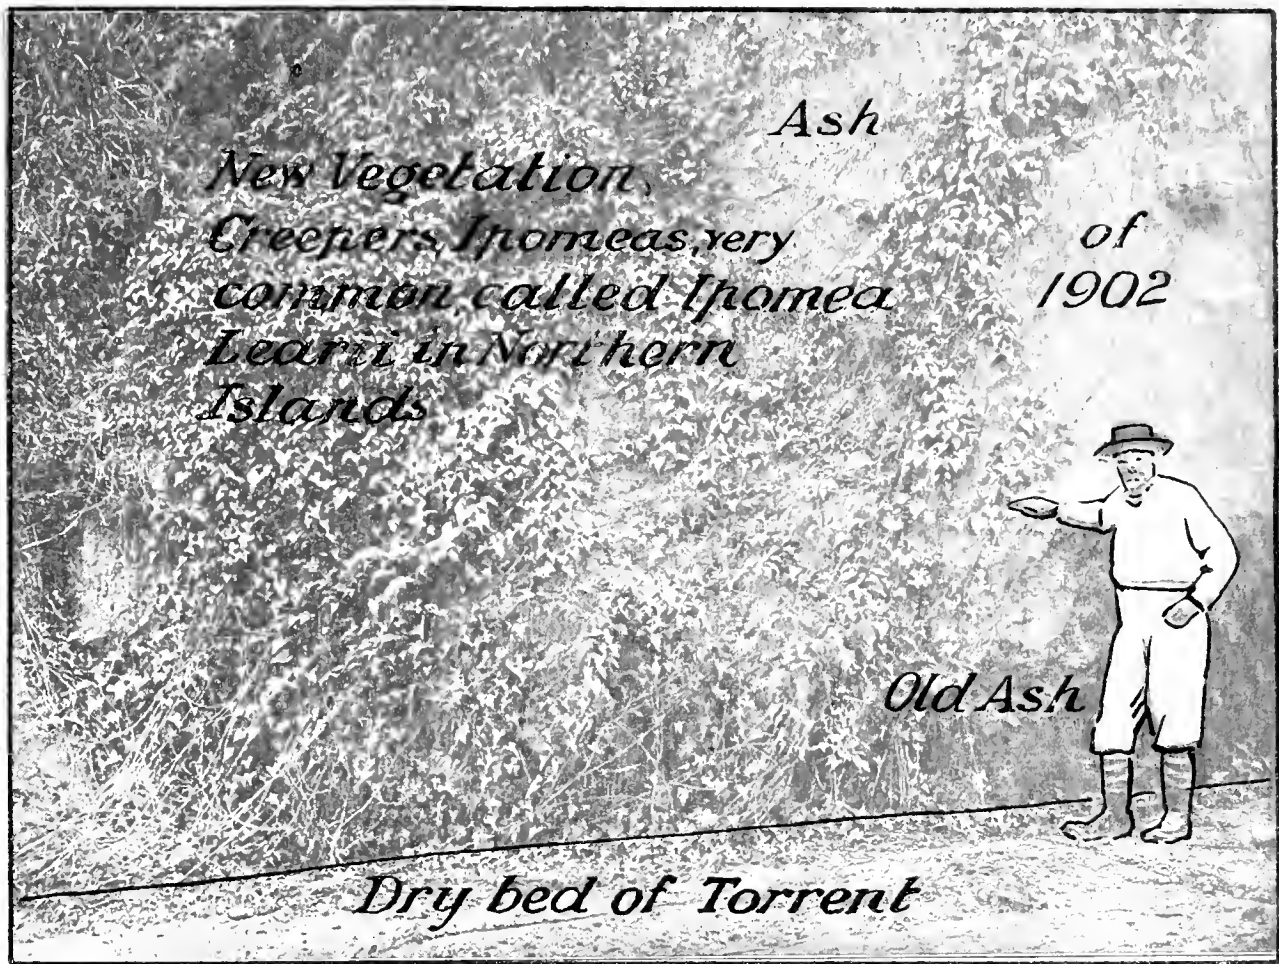 Ash
New Vegetation,
Creepers, Ipomeas, very
common called Ipomea
Learii in Northern
Islands
of
1902
Old Ash
Dry bed of Torrent